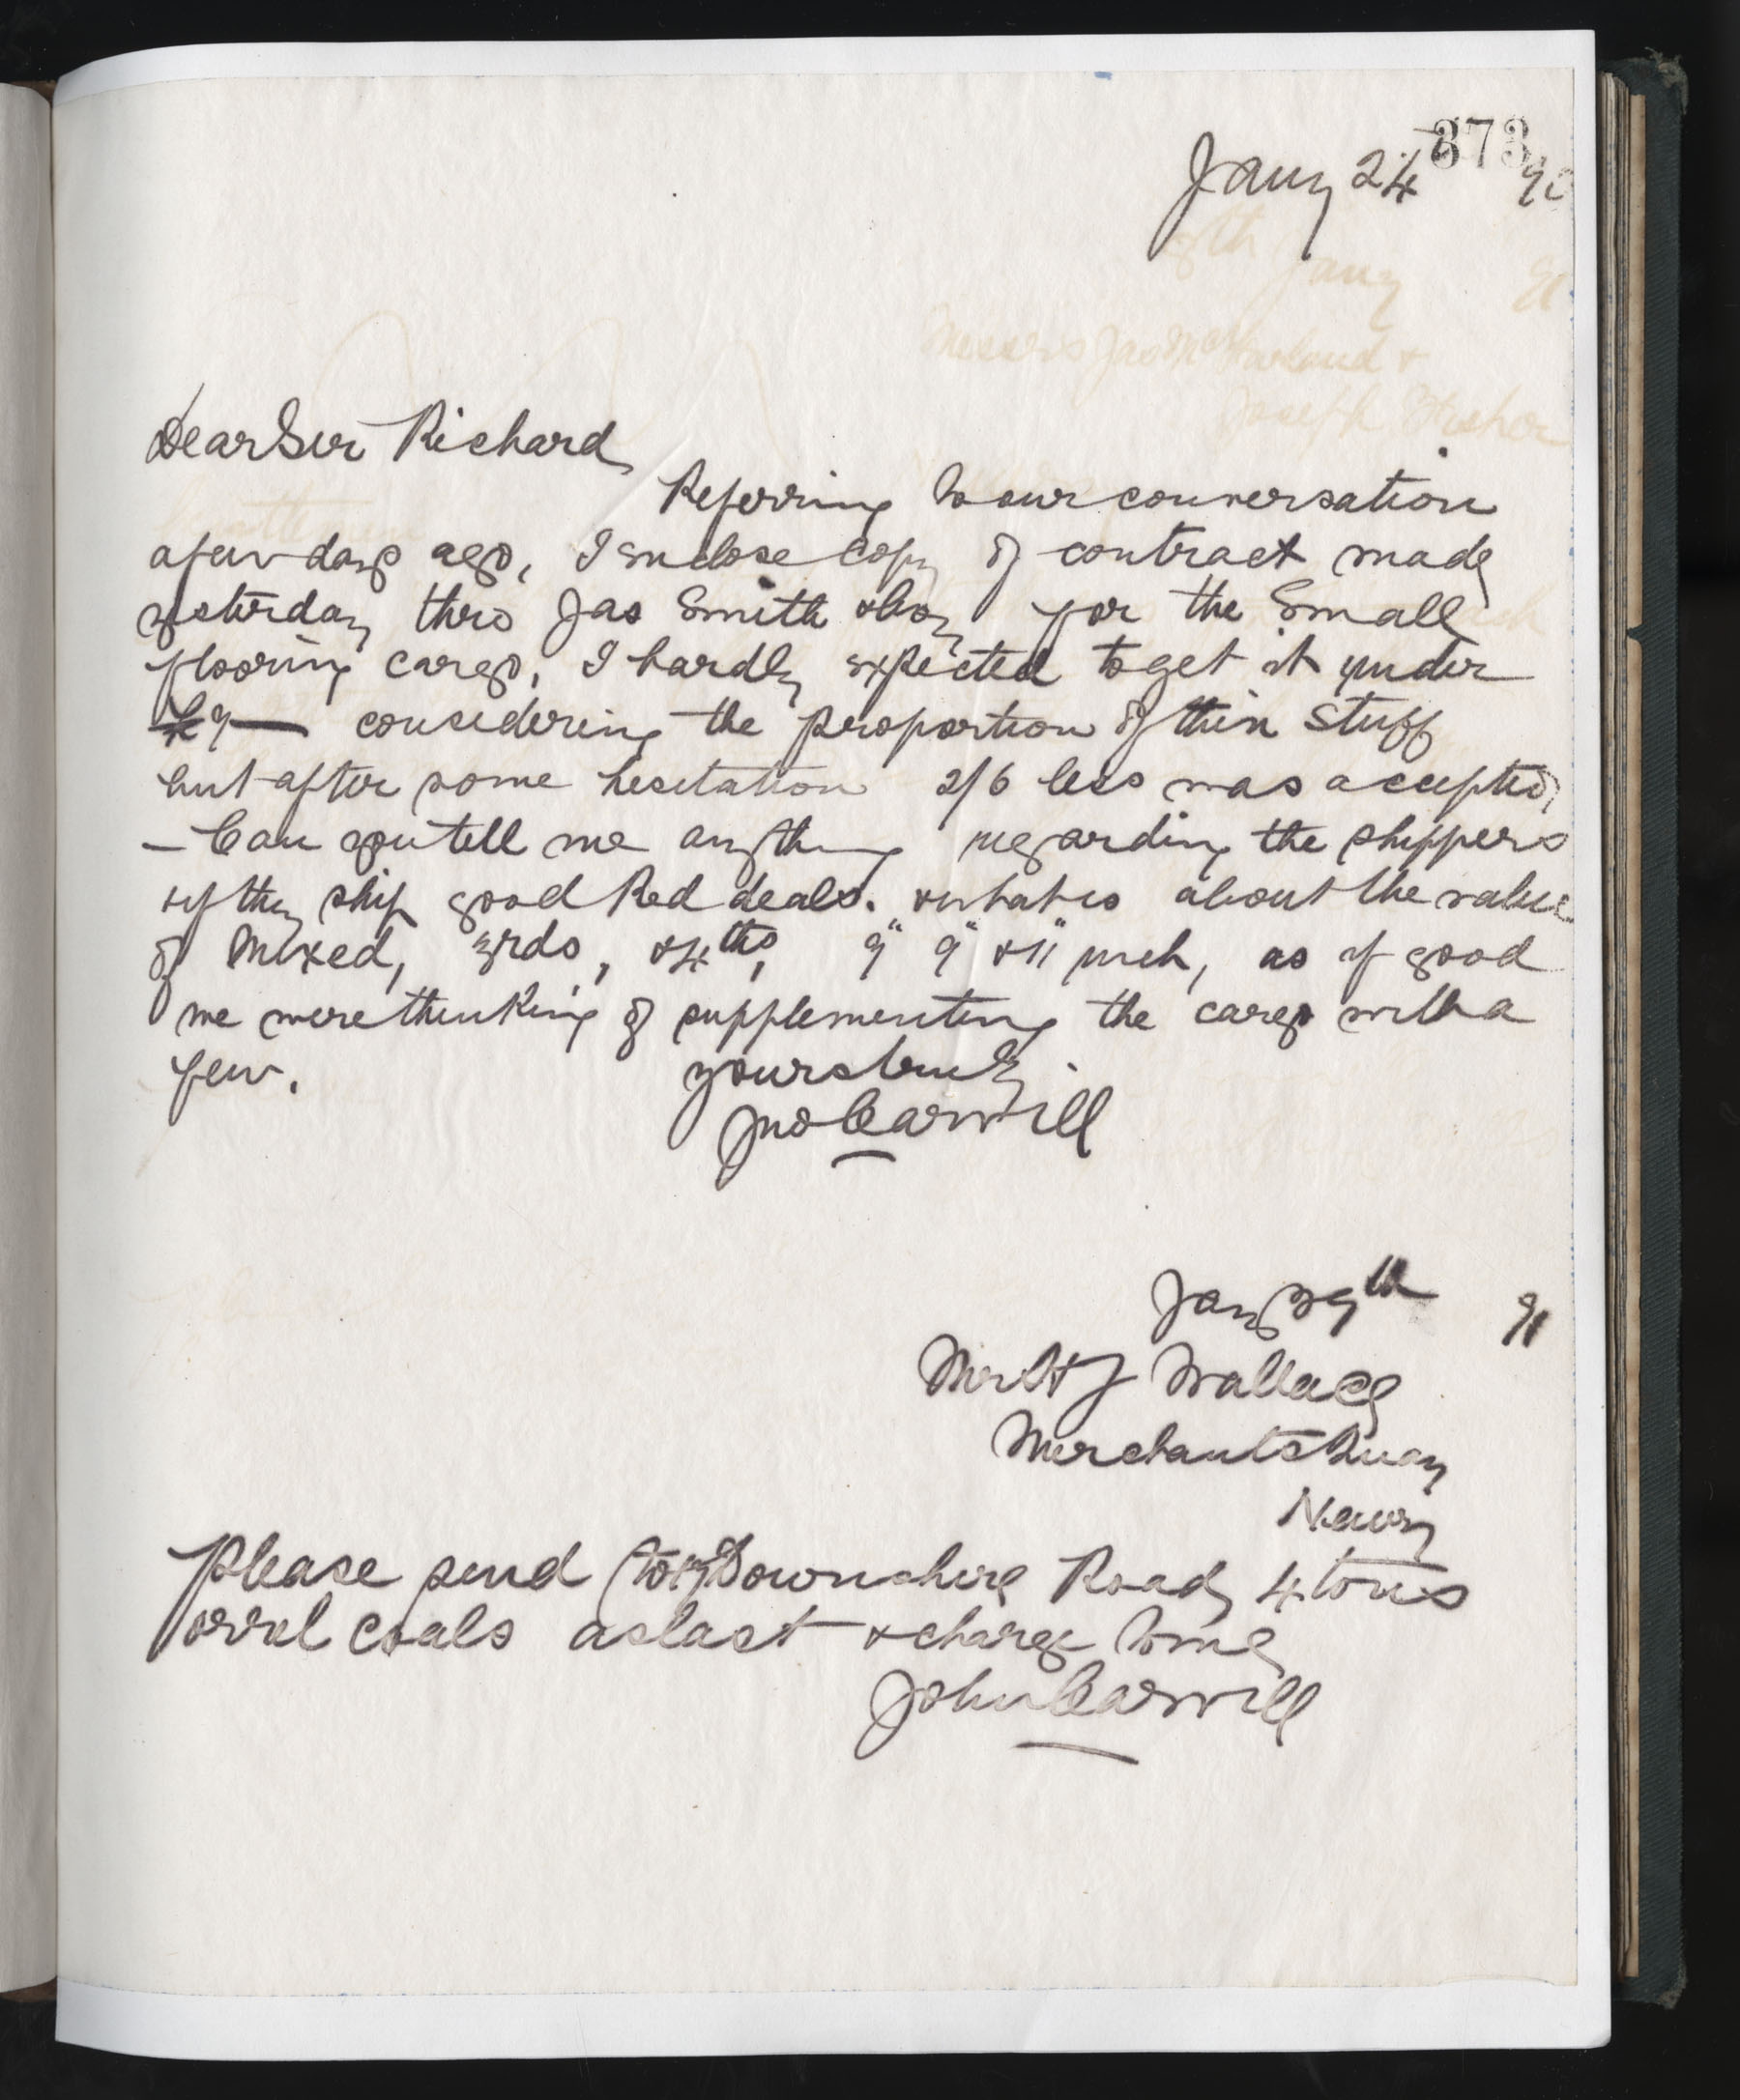 373
Jany 24 90
Dear Sir Richard
Referring to our conversation
a few days ago, I enclose Copy of contract made
yesterday thro Jas Smith & Coy for the Small
flooring cargo, I hardly expected to get it under
£7 — considering the proportion of thin Stuff
but after some hesitation 2/6 less was accepted,
— Can you tell me anything regarding the shippers
if they ship good Red deals. & what is about the value
of Mixed, 3rds, & 4ths, 9" & 11" inch, as if good
we were thinking of supplementing the cargo with a
few. yours truly
Jno Carvill
Jany 29th 91
Mr W J Wallace
Merchants Quay
Newry
Please send to Downshire Road 4 tons
orrel coals as last & charge to me
John Carvill